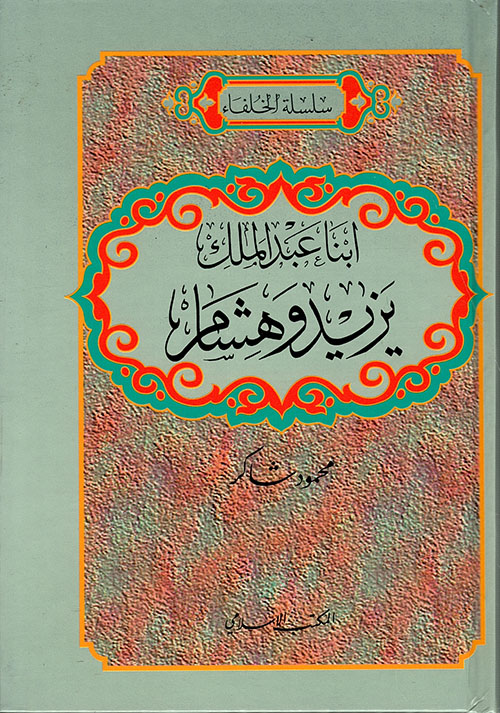 سلسلة الخلفاء
ابنا عبد الملك
يزيد وهشام
محمود شاكر
المكتب الإسلامي